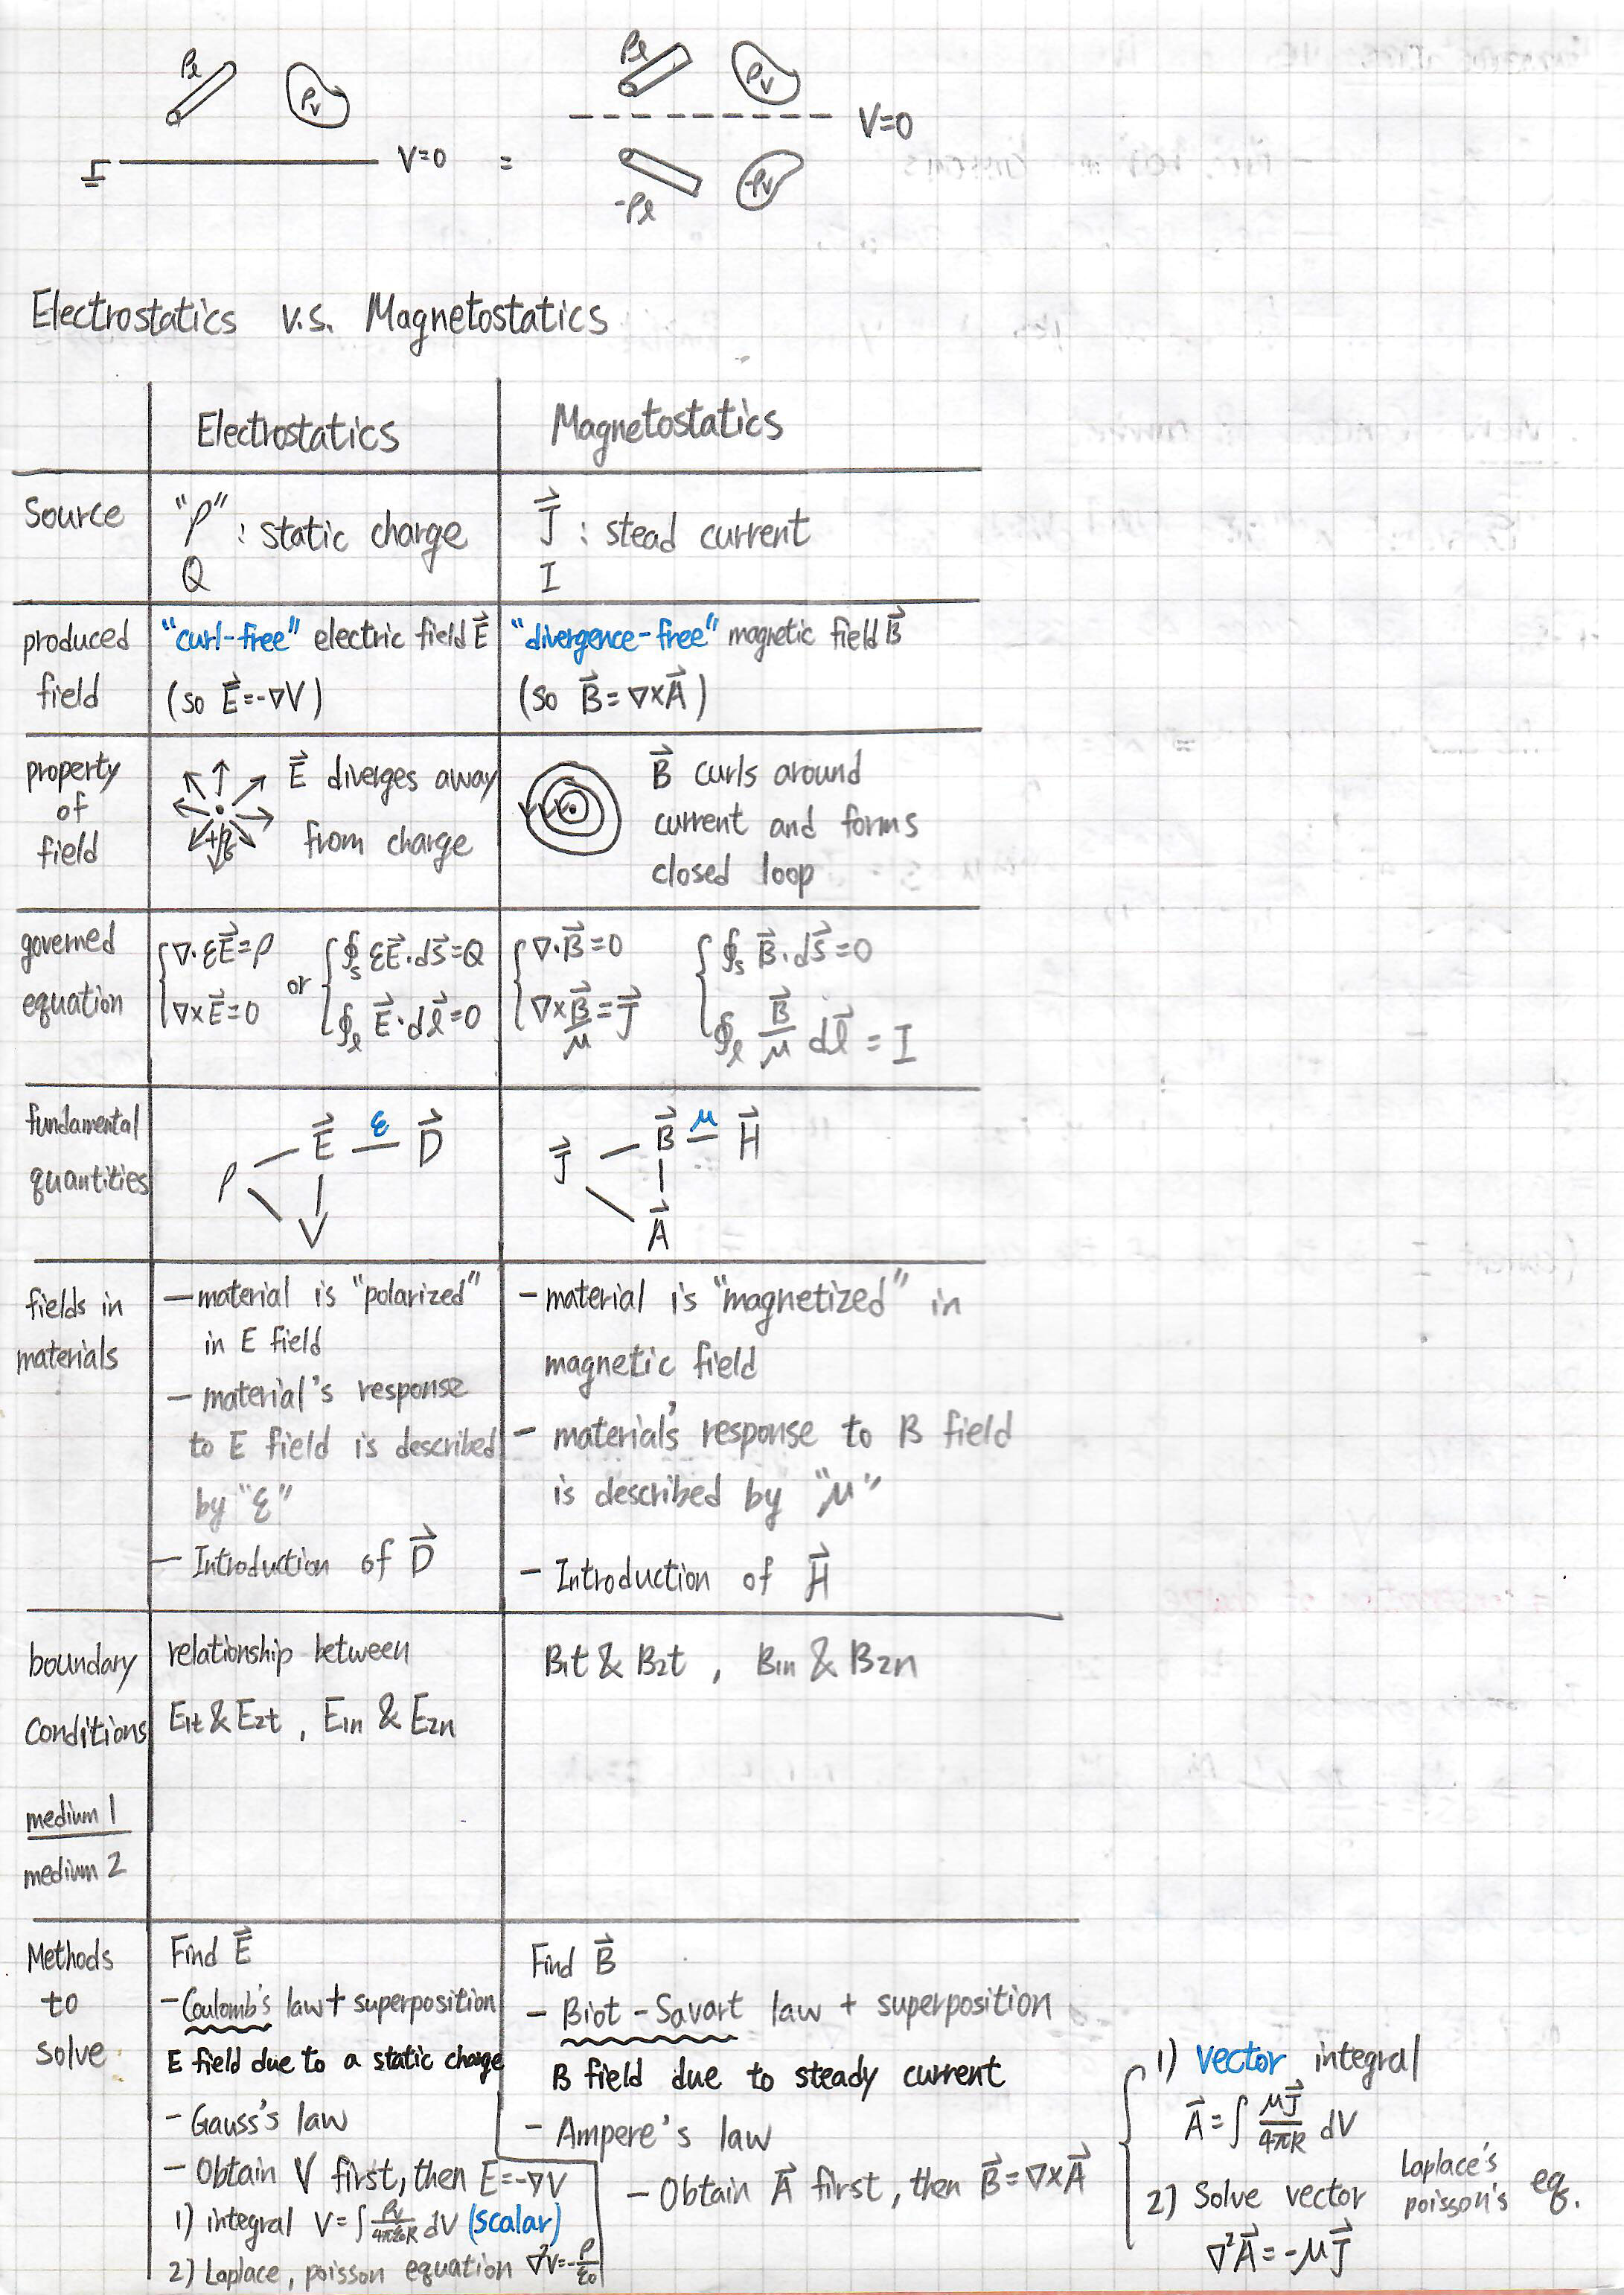 ρℓ ρv V=0 = ρℓ ρv V=0
-ρℓ -ρv
Electrostatics v.s. Magnetostatics
Electrostatics Magnetostatics
Source
"ρ" : static charge
Q
J⃗ : stead current
I
produced field
"curl-free" electric field E⃗
(so E⃗=-∇V)
"divergence-free" magnetic field B⃗
(so B⃗=∇×A⃗)
property
of
field
E⃗ diverges away
from charge
B⃗ curls around
current and forms
closed loop
governed
equation
∇·εE⃗=ρ
∇×E⃗=0
or
∮s εE⃗·ds⃗=Q
∮ℓ E⃗·dℓ⃗=0
∇·B⃗=0
∇×B⃗/μ=J⃗
∮s B⃗·ds⃗=0
∮ℓ B⃗/μ dℓ⃗=I
fundamental
quantities
E⃗ ε D⃗
ρ
V
B⃗ μ H⃗
J⃗
A⃗
fields in
materials
- material is "polarized"
in E field
- material's response
to E field is described
by "ε"
- Introduction of D⃗
- material is "magnetized" in
magnetic field
- material's response to B field
is described by "μ"
- Introduction of H⃗
boundary
conditions
medium 1
medium 2
relationship between
E1t & E2t , E1n & E2n
B1t & B2t , B1n & B2n
Methods
to
solve
Find E⃗
- Coulomb's law + superposition
E field due to a static charge
- Gauss's law
- Obtain V first, then E=-∇V
1) integral V=∫ρv/4πε0R dV (scalar)
2) Laplace, poisson equation ∇²V=-ρ/ε0
Find B⃗
- Biot-Savart law + superposition
B field due to steady current
- Ampere's law
- Obtain A⃗ first, then B⃗=∇×A⃗
1) vector integral
A⃗=∫μJ⃗/4πR dV
2) Solve vector Laplace's poisson's eq.
∇²A⃗=-μJ⃗